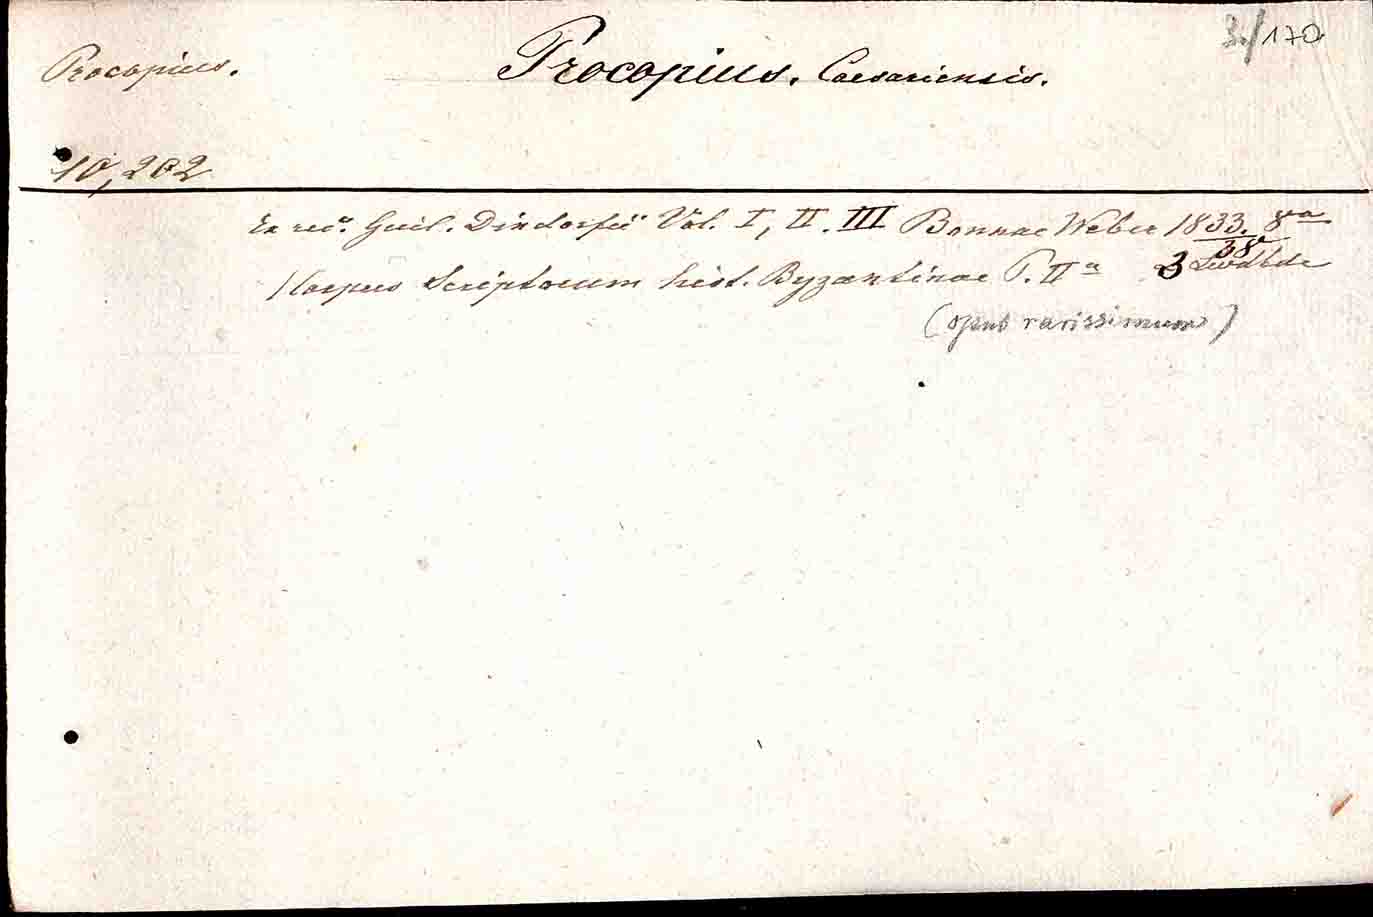 3./170
Procopius. Procopius. Caesariensis.
10,202
Ex rec. Guil. Dindorfii Vol. I, II. III Bonnae Weber 1833. 8va
38
/Corpus Scriptorum hist. Byzantinae P. IIa 3
(opus rarissimum)